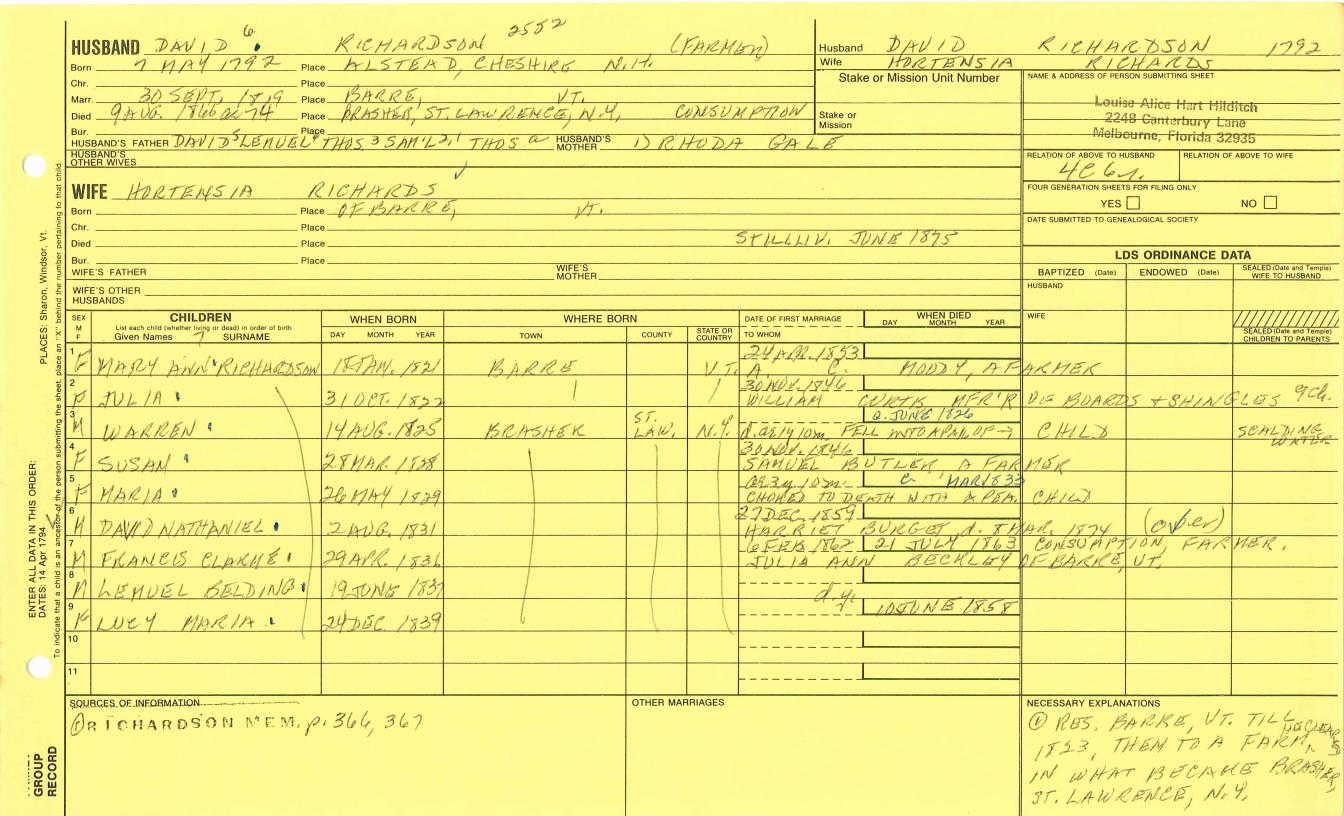 HUSBAND DAVID 6 RICHARDSON 2552 (FARMER)
Born 7 MAY 1792 Place ALSTEAD, CHESHIRE N.H.
Chr. Place
Marr. 30 SEPT. 1819 Place BARRE, VT.
Died 9 AUG. 1866 ae 74 Place BRASHER, ST. LAWRENCE, N.Y. CONSUMPTION
Bur. Place
HUSBAND'S FATHER DAVID 5 LEMUEL 4 THOS 3 SAM'L 2,1 THOS a HUSBAND'S MOTHER 1) RHODA GALE
HUSBAND'S OTHER WIVES
WIFE HORTENSIA RICHARDS
Born Place OF BARRE, VT.
Chr. Place
Died Place STILL LIV. JUNE 1875
Bur. Place
WIFE'S FATHER WIFE'S MOTHER
WIFE'S OTHER HUSBANDS
Husband DAVID RICHARDSON 1792
Wife HORTENSIA RICHARDS
Stake or Mission Unit Number
Stake or Mission
NAME & ADDRESS OF PERSON SUBMITTING SHEET
Louise Alice Hart Hilditch
2248 Canterbury Lane
Melbourne, Florida 32935
RELATION OF ABOVE TO HUSBAND RELATION OF ABOVE TO WIFE
4C 6r.
FOUR GENERATION SHEETS FOR FILING ONLY
YES NO
DATE SUBMITTED TO GENEALOGICAL SOCIETY
LDS ORDINANCE DATA
BAPTIZED (Date) ENDOWED (Date) SEALED (Date and Temple) WIFE TO HUSBAND
HUSBAND
WIFE
SEALED (Date and Temple) CHILDREN TO PARENTS
SEX M F CHILDREN WHEN BORN WHERE BORN DATE OF FIRST MARRIAGE WHEN DIED
List each child (whether living or dead) in order of birth
Given Names 7 SURNAME DAY MONTH YEAR TOWN COUNTY STATE OR COUNTRY TO WHOM DAY MONTH YEAR
1 24 APR. 1853
F MARY ANN RICHARDSON 18 JAN. 1821 BARRE VT. A. C. MOODY, A FARMER
2 30 NOV. 1846
F JULIA 31 OCT. 1822 WILLIAM CURTIS MFR'R OF BOARDS & SHINGLES 9 Ch.
3 a. JUNE 1826
M WARREN 14 AUG. 1825 BRASHER ST. LAW. N.Y. d. ae 1y 10m FELL INTO A PAIL OF → CHILD SCALDING WATER
4 30 NOV. 1846
F SUSAN 28 MAR. 1828 SAMUEL BUTLER, A FARMER
5 ae 3y 10m. c. MAR 1833
F MARIA 26 MAY 1829 CHOKED TO DEATH WITH A PEA. CHILD
6 27 DEC. 1859
M DAVID NATHANIEL 2 AUG. 1831 HARRIET BURGET d. 8 MAR. 1874 (over)
7 6 FEB 1862 21 JULY 1863 CONSUMPTION, FARMER.
M FRANCIS CLARKE 29 APR. 1836 JULIA ANN BECKLEY OF BARRE, VT.
8
M LEMUEL BELDING 19 JUNE 1837 d.y.
9 10 JUNE 1858
F LUCY MARIA 24 DEC. 1839
10
11
SOURCES OF INFORMATION
① RICHARDSON MEM. p. 366, 367
OTHER MARRIAGES
NECESSARY EXPLANATIONS
① RES. BARRE, VT. TILL
1823, THEN TO A FARM, HE CLEARED
IN WHAT BECAME BRASHER,
ST. LAWRENCE, N.Y.
PLACES: Sharon, Windsor, Vt.
ENTER ALL DATA IN THIS ORDER:
DATES: 14 Apr 1794
To indicate that a child is an ancestor of the person submitting the sheet, place an "X" behind the number pertaining to that child.
GROUP
RECORD